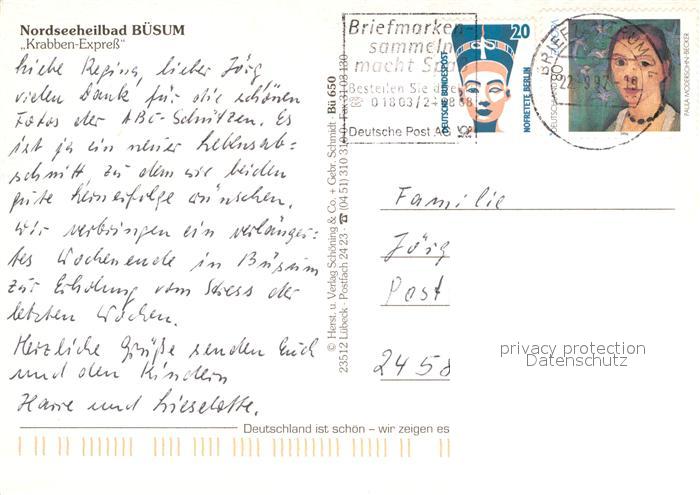 Nordseeheilbad BÜSUM
„Krabben-Expreß"
Liebe Regina, lieber Jörg
vielen Dank für die schönen
Fotos der ABC-Schützen. Es
ist ja ein neuer Lebensab=
schnitt, zu dem wir beiden
gute Lernerfolge wünschen.
Wir verbringen ein verlänger=
tes Wochenende in Büsum
zur Erholung vom Stress der
letzten Wochen.
Herzliche Grüße senden Euch
und den Kindern
und Lieselotte.
Deutschland ist schön – wir zeigen es
© Herst. u. Verlag Schöning & Co. + Gebr. Schmidt
Bü 650
23512 Lübeck · Postfach 24 23 · ☎ (04 51) 310 310
Briefmarken-
sammeln
macht
Bestellen Sie
Deutsche Post AG
20
DEUTSCHE BUNDESPOST
NOFRETETE BERLIN
PAULA MODERSOHN-BECKER
Familie
Jörg
Post
2458
privacy protection
Datenschutz